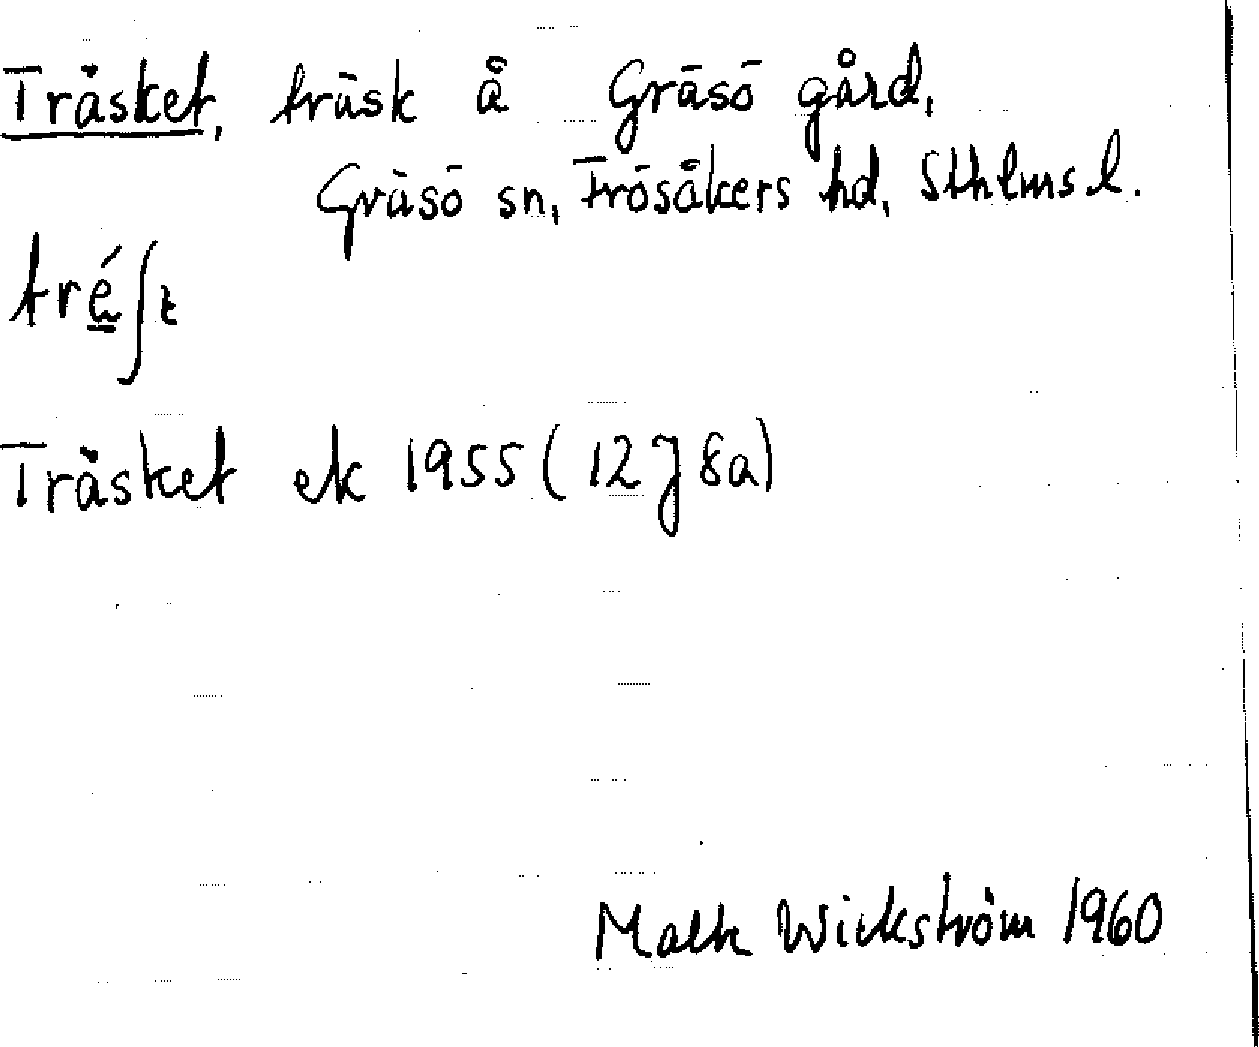 Träsket, träsk å Gräsö gård,
Gräsö sn, Frösåkers hd, Sthlms l.
tréʃt
Träsket ek 1955 (12 J 8a)
Wickström 1960